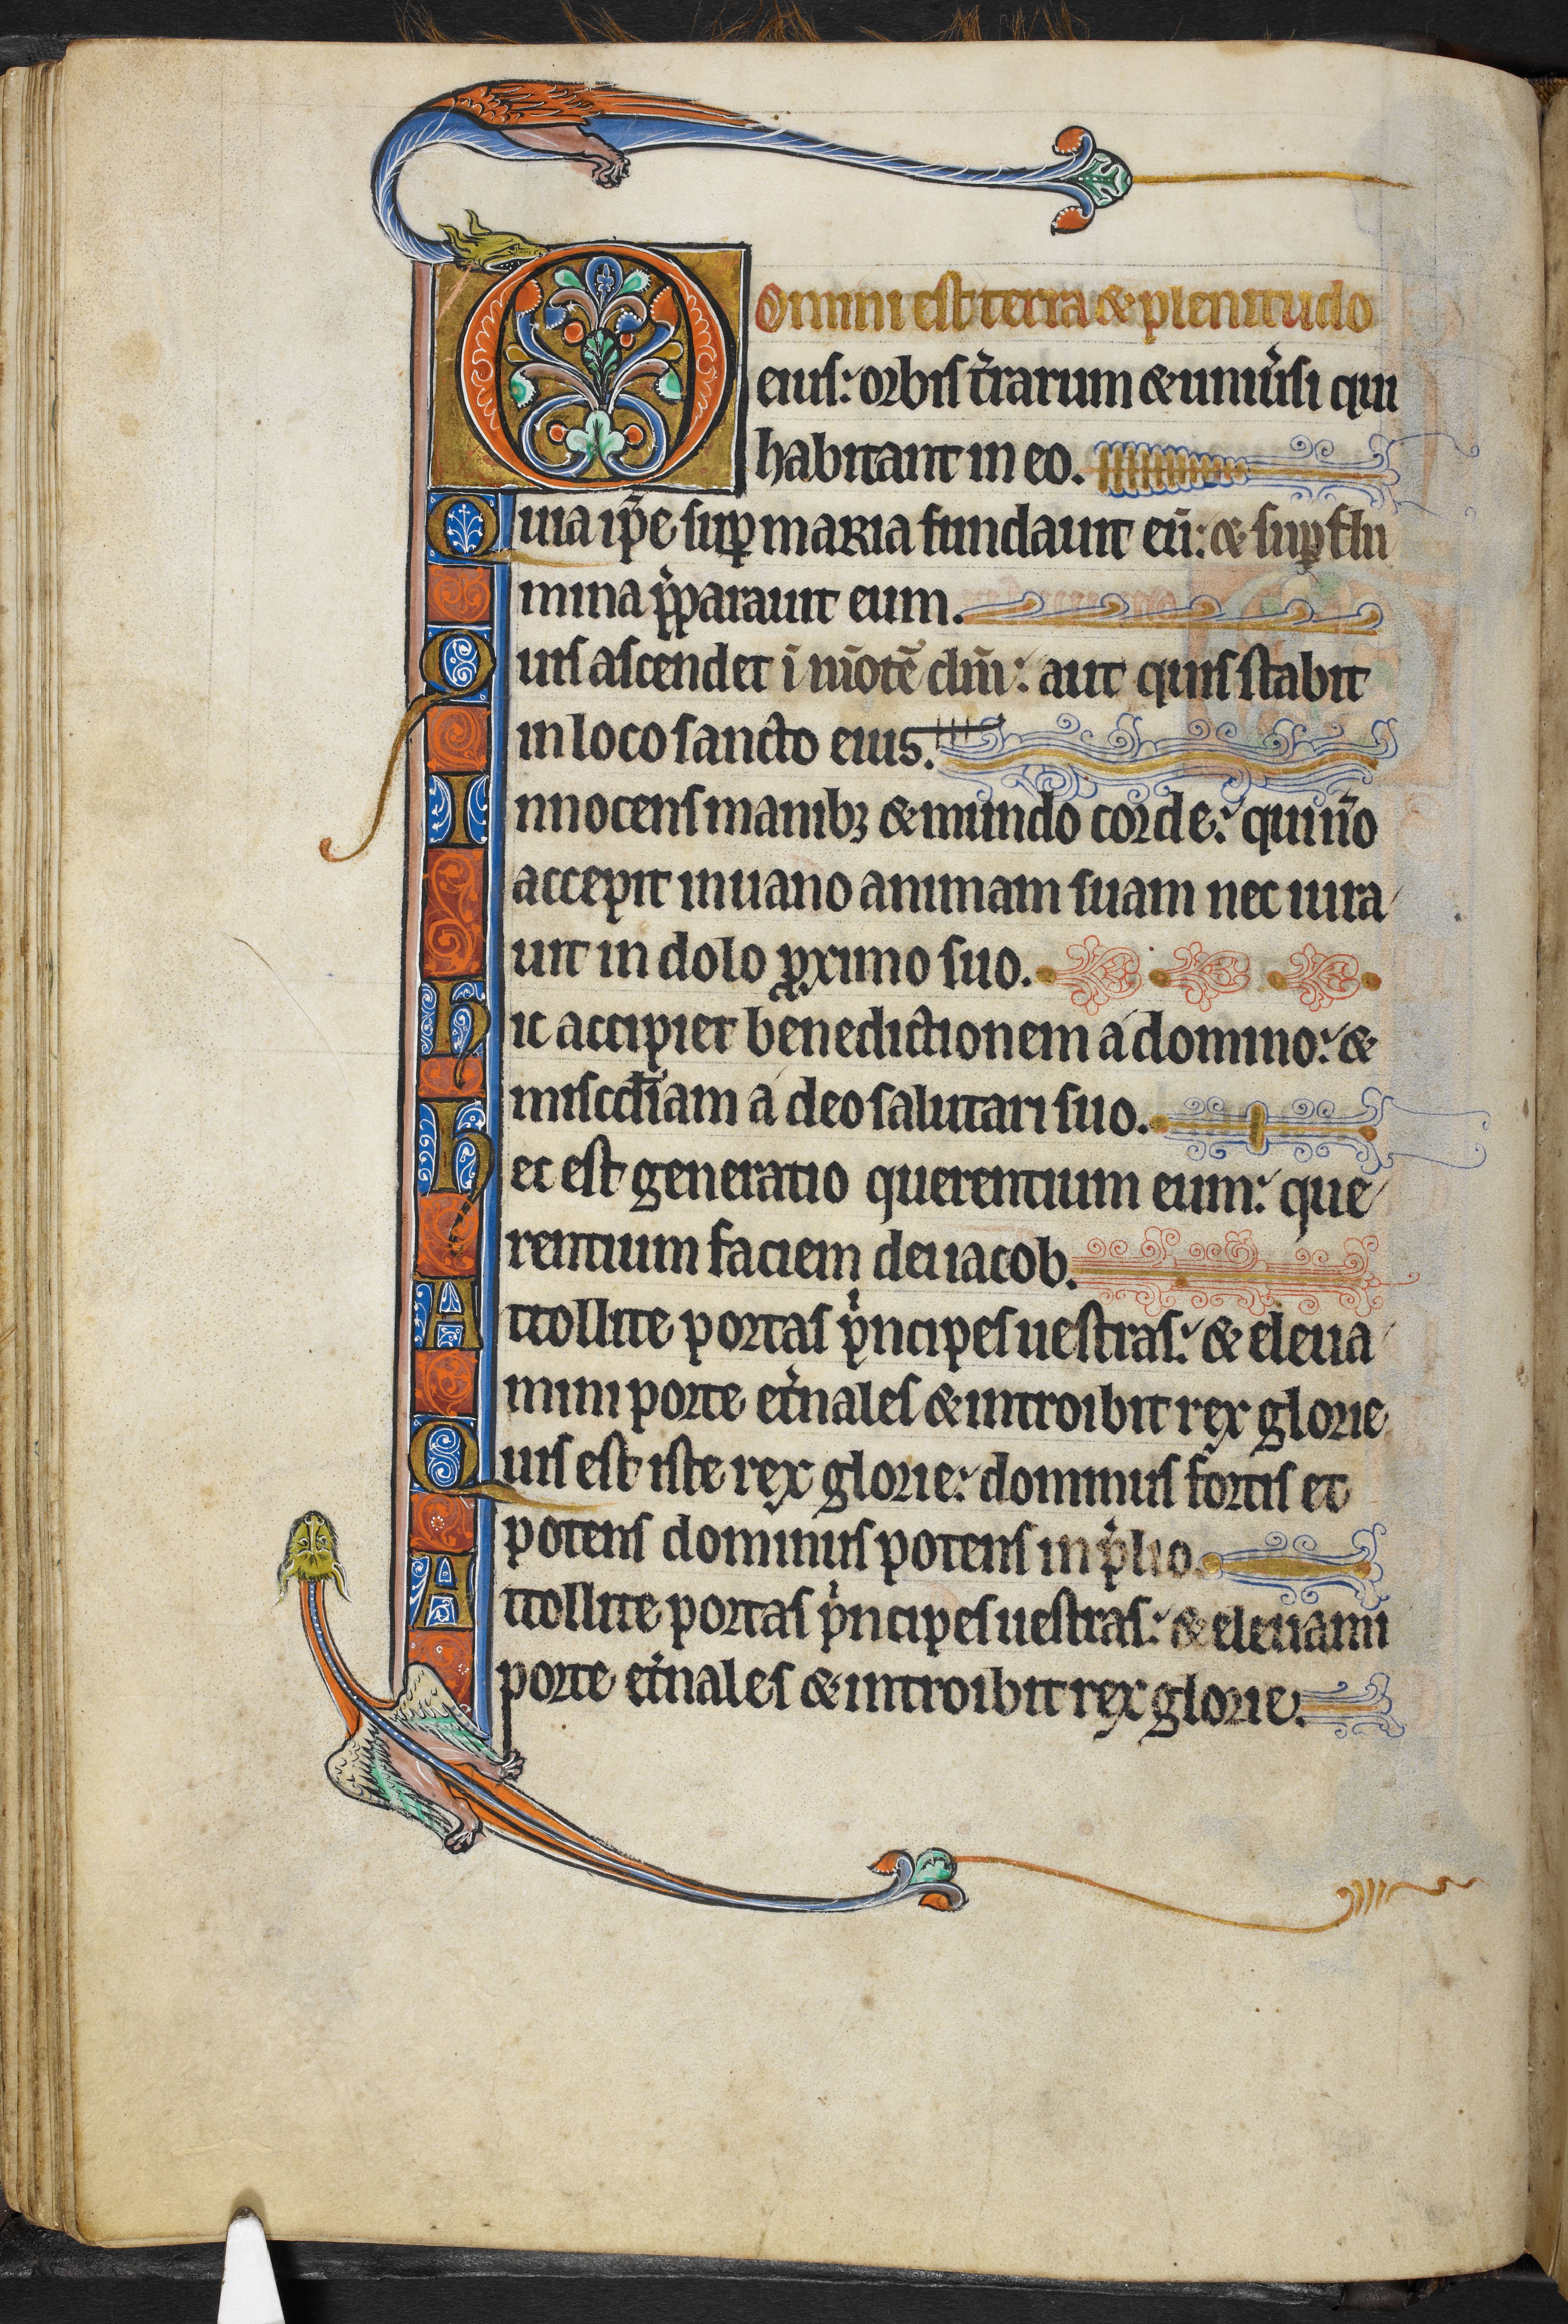 Domini est terra & plenitudo
eius: orbis t̉rarum & uniu̾si qui
habitant in eo.
Quia ip̄e sup̱ maria fundauit eū: & sup̱ flu
mina p̄parauit eum.
Quis ascendet ī mōtē dn̄i: aut quis stabit
in loco sancto eius.
Innocens manibꝫ & mundo corde: qui ū̉o
accepit in uano animam suam nec iura
uit in dolo ꝓximo suo.
Hic accipiet benedictionem a domino: &
misc̄diam a deo salutari suo.
Hec est generatio querentium eum: que
rentium faciem dei iacob.
Attollite portas pͥncipes uestras: & eleua
mini porte et̉nales & introibit rex glorie
Quis est iste rex glorie: dominus fortis et
potens dominus potens in p̄lio.
Attollite portas pͥncipes uestras: & eleuami
porte et̉nales & introibit rex glorie.